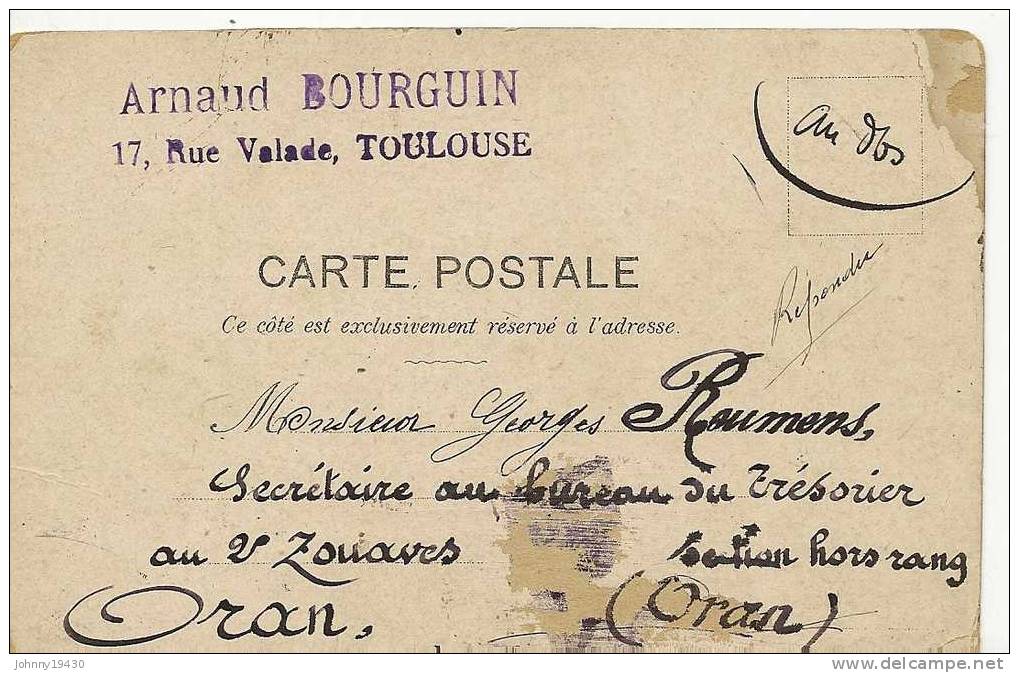 Arnaud BOURGUIN
17, Rue Valade, TOULOUSE
au dos
CARTE POSTALE
Répondu
Ce côté est exclusivement réservé à l'adresse.
Monsieur Georges Roumens,
Secrétaire au bureau du Trésorier
au 2e Zouaves Section hors rang
Oran, (Oran)
Johnny19430
www.delcampe.net